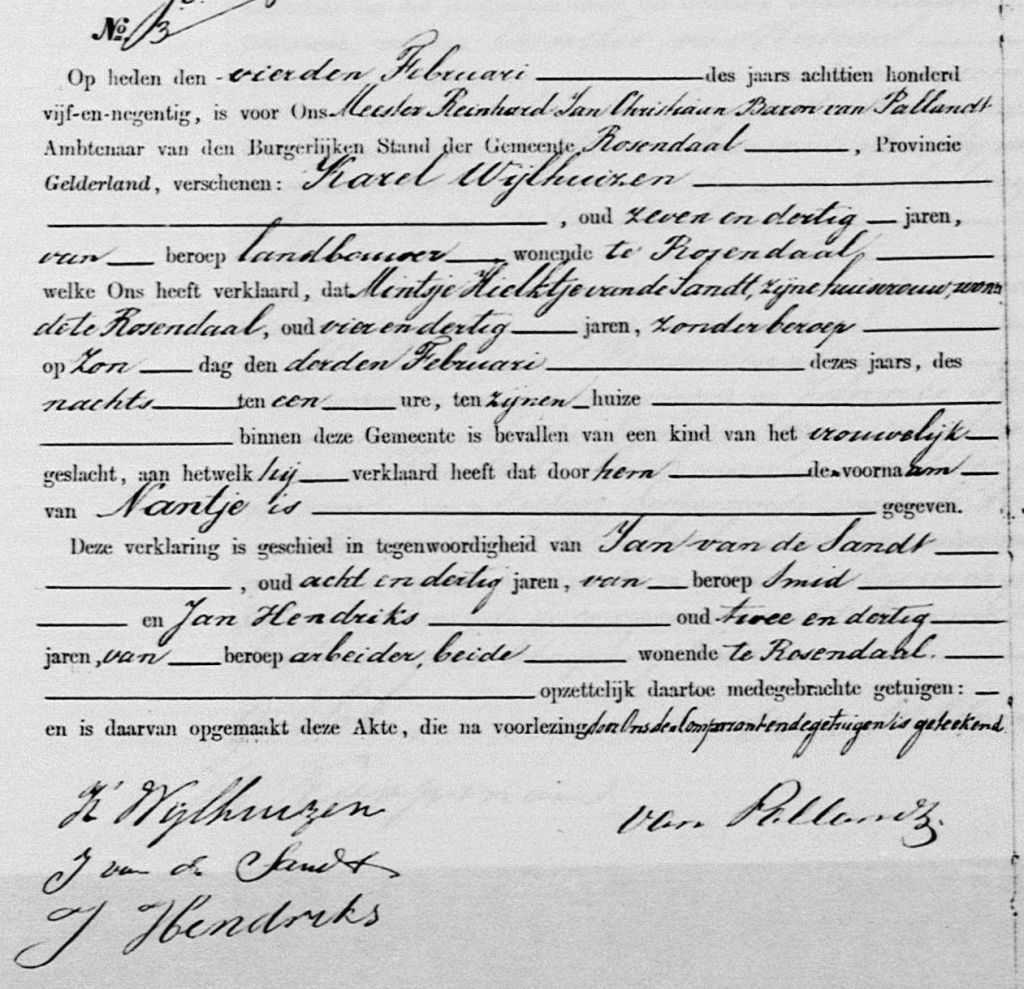 No. 3
Op heden den vierden Februari des jaars achttien honderd
vijf-en-negentig, is voor Ons Meester Reinhard Jan Christiaan Baron van Pallandt
Ambtenaar van den Burgerlijken Stand der Gemeente Rosendaal, Provincie
Gelderland, verschenen: Karel Wijlhuizen
, oud zeven en dertig jaren,
van beroep landbouwer, wonende te Rosendaal,
welke Ons heeft verklaard, dat Mintsje Hielktje van de Sandt, zijne huisvrouw, wonen
de te Rosendaal, oud vier en dertig jaren, zonder beroep
op Zon dag den derden Februari dezes jaars, des
nachts ten een ure, ten zijnen huize
binnen deze Gemeente is bevallen van een kind van het vrouwelijk
geslacht, aan hetwelk hij verklaard heeft dat door hem de voornaam
van Nantje is gegeven.
Deze verklaring is geschied in tegenwoordigheid van Jan van de Sandt
, oud acht en dertig jaren, van beroep Smid
en Jan Hendriks oud twee en dertig
jaren, van beroep arbeider, beide wonende te Rosendaal.
opzettelijk daartoe medegebrachte getuigen:
en is daarvan opgemaakt deze Akte, die na voorlezing door Ons de Comparant en de getuigen is geteekend.
K Wijlhuizen
van Pallandt.
J van de Sandt
J Hendriks